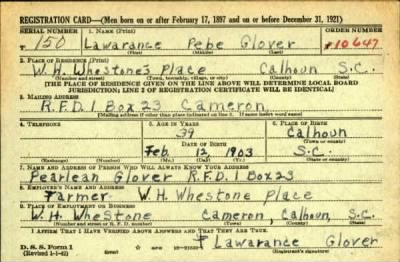 REGISTRATION CARD—(Men born on or after February 17, 1897 and on or before December 31, 1921)
SERIAL NUMBER 1. NAME (Print) ORDER NUMBER
T 150 Lawarance Pebe Glover 10647
(First) (Middle) (Last)
2. PLACE OF RESIDENCE (Print)
W. H. Whestone's Place Calhoun S.C.
(Number and street) (Town, township, village, or city) (County) (State)
[THE PLACE OF RESIDENCE GIVEN ON THE LINE ABOVE WILL DETERMINE LOCAL BOARD
JURISDICTION; LINE 2 OF REGISTRATION CERTIFICATE WILL BE IDENTICAL]
3. MAILING ADDRESS
R.F.D. 1 Box 23 Cameron
[Mailing address if other than place indicated on line 2. If same insert word same]
4. TELEPHONE 5. AGE IN YEARS 6. PLACE OF BIRTH
39 Calhoun
DATE OF BIRTH (Town or county)
Feb. 12, 1903 S.C.
(Exchange) (Number) (Mo.) (Day) (Yr.) (State or country)
7. NAME AND ADDRESS OF PERSON WHO WILL ALWAYS KNOW YOUR ADDRESS
Pearlean Glover R.F.D. 1 Box 23
8. EMPLOYER'S NAME AND ADDRESS
Farmer W. H. Whestone Place
9. PLACE OF EMPLOYMENT OR BUSINESS
W. H. Whestone Cameron, Calhoun, S.C.
(Number and street or R. F. D. number) (Town) (County) (State)
I AFFIRM THAT I HAVE VERIFIED ABOVE ANSWERS AND THAT THEY ARE TRUE.
D. S. S. Form 1 Lawarance Glover
(Revised 1-1-42) (Registrant's signature)